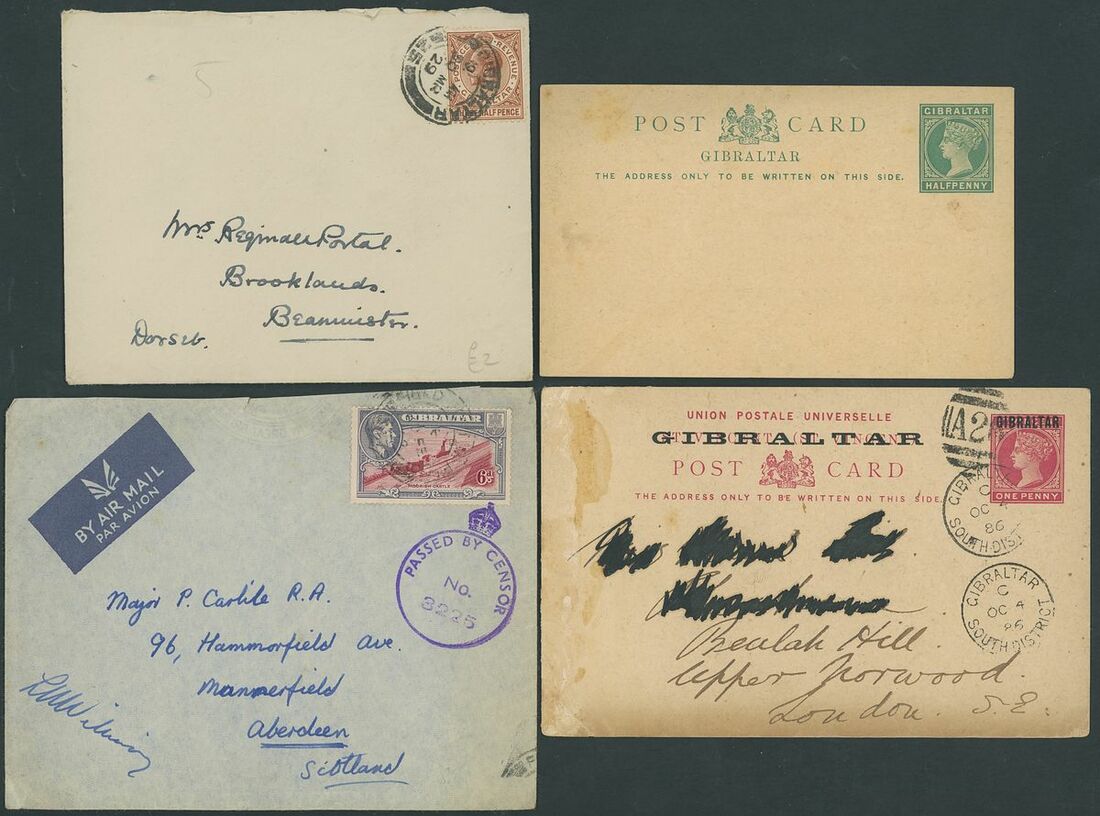 5
GIBRALTAR
29 MR
POSTAGE & REVENUE
GIBRALTAR
HALF PENCE
Mrs Reginald Portal.
Brooklands.
Beaminster.
Dorset.
£2
POST CARD
GIBRALTAR
THE ADDRESS ONLY TO BE WRITTEN ON THIS SIDE.
GIBRALTAR
HALFPENNY
BY AIR MAIL
PAR AVION
GIBRALTAR
6d
MOORISH CASTLE
PASSED BY CENSOR
No.
3225
Major P. Carlile R.A.
96, Hammerfield Ave.
Mannerfield
Aberdeen
Scotland
UNION POSTALE UNIVERSELLE
GIBRALTAR
POST CARD
THE ADDRESS ONLY TO BE WRITTEN ON THIS SIDE.
A26
GIBRALTAR
ONE PENNY
GIBRALTAR
C
OC 4
86
SOUTH-DISTRICT
GIBRALTAR
C
OC 4
86
SOUTH-DISTRICT
Beulah Hill.
Upper Norwood.
London. S.E.